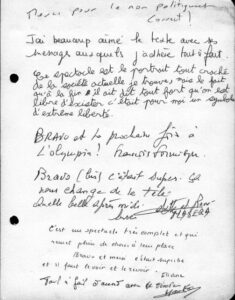 Merci pour le non politiquement
Correct !
J'ai beaucoup aimé le texte avec ses
messages auxquels j'adhère tout à fait.
Ce spectacle est le portrait tout craché
de la société actuelle je trouve mais le fait
qu'à la fin il ait dit tout fort qu'on est
libre d'exister c'était pour moi un symbole
d'extrême liberté.
BRAVO et la prochaine fois à
L'Olympia !
BRAVO (bis) c'était super. Ça
nous change de la télé
Quelle belle après midi
C'est un spectacle très complet et qui
remet plein de choses à leur place
Bravo et merci c'était superbe
et il faut le voir et le revoir
Tout à fait d'accord avec